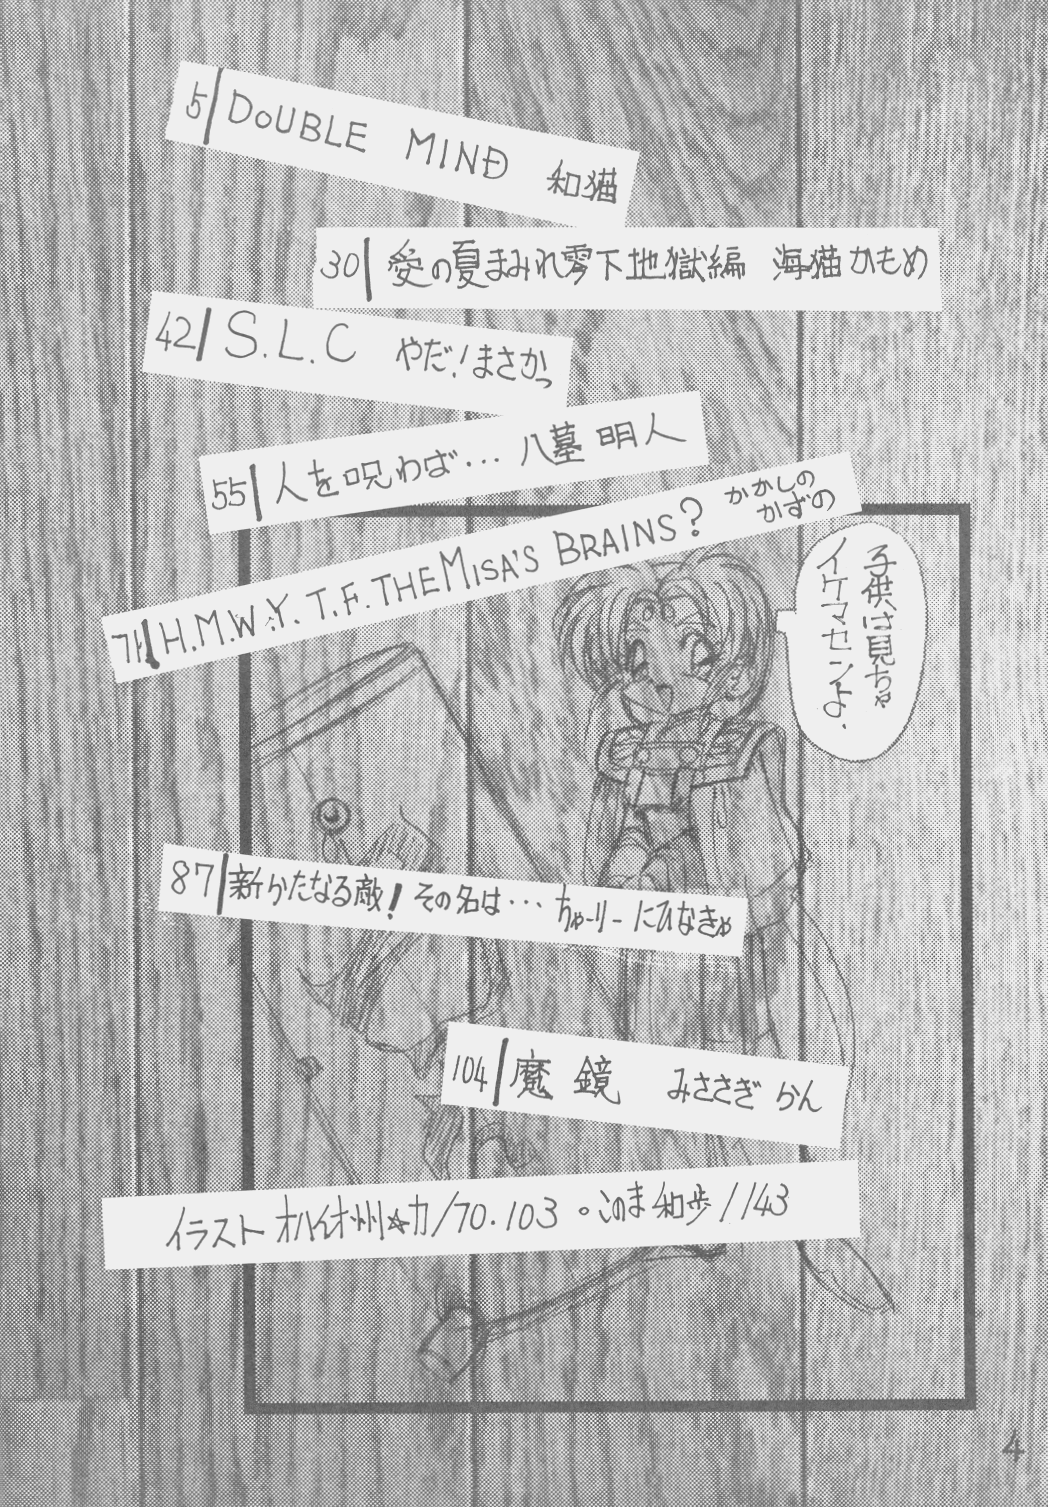 5 DOUBLE MIND 和猫
30 愛の夏まみれ零下地獄編 海猫かもめ
42 S.L.C やだ!まさかっ
55 人を呪わば… 八墓明人
71 H.M.W.Y. T.F. THE MISA'S BRAINS? かかしの
かずの
子供は見ちゃ
イケマセンよ.
87 新かたなる敵! その名は… ちゃーりーにひなきゃ
104 魔鏡 みささぎらん
イラスト オルイオ州☆カ/70.103 。このま和歩/143
4